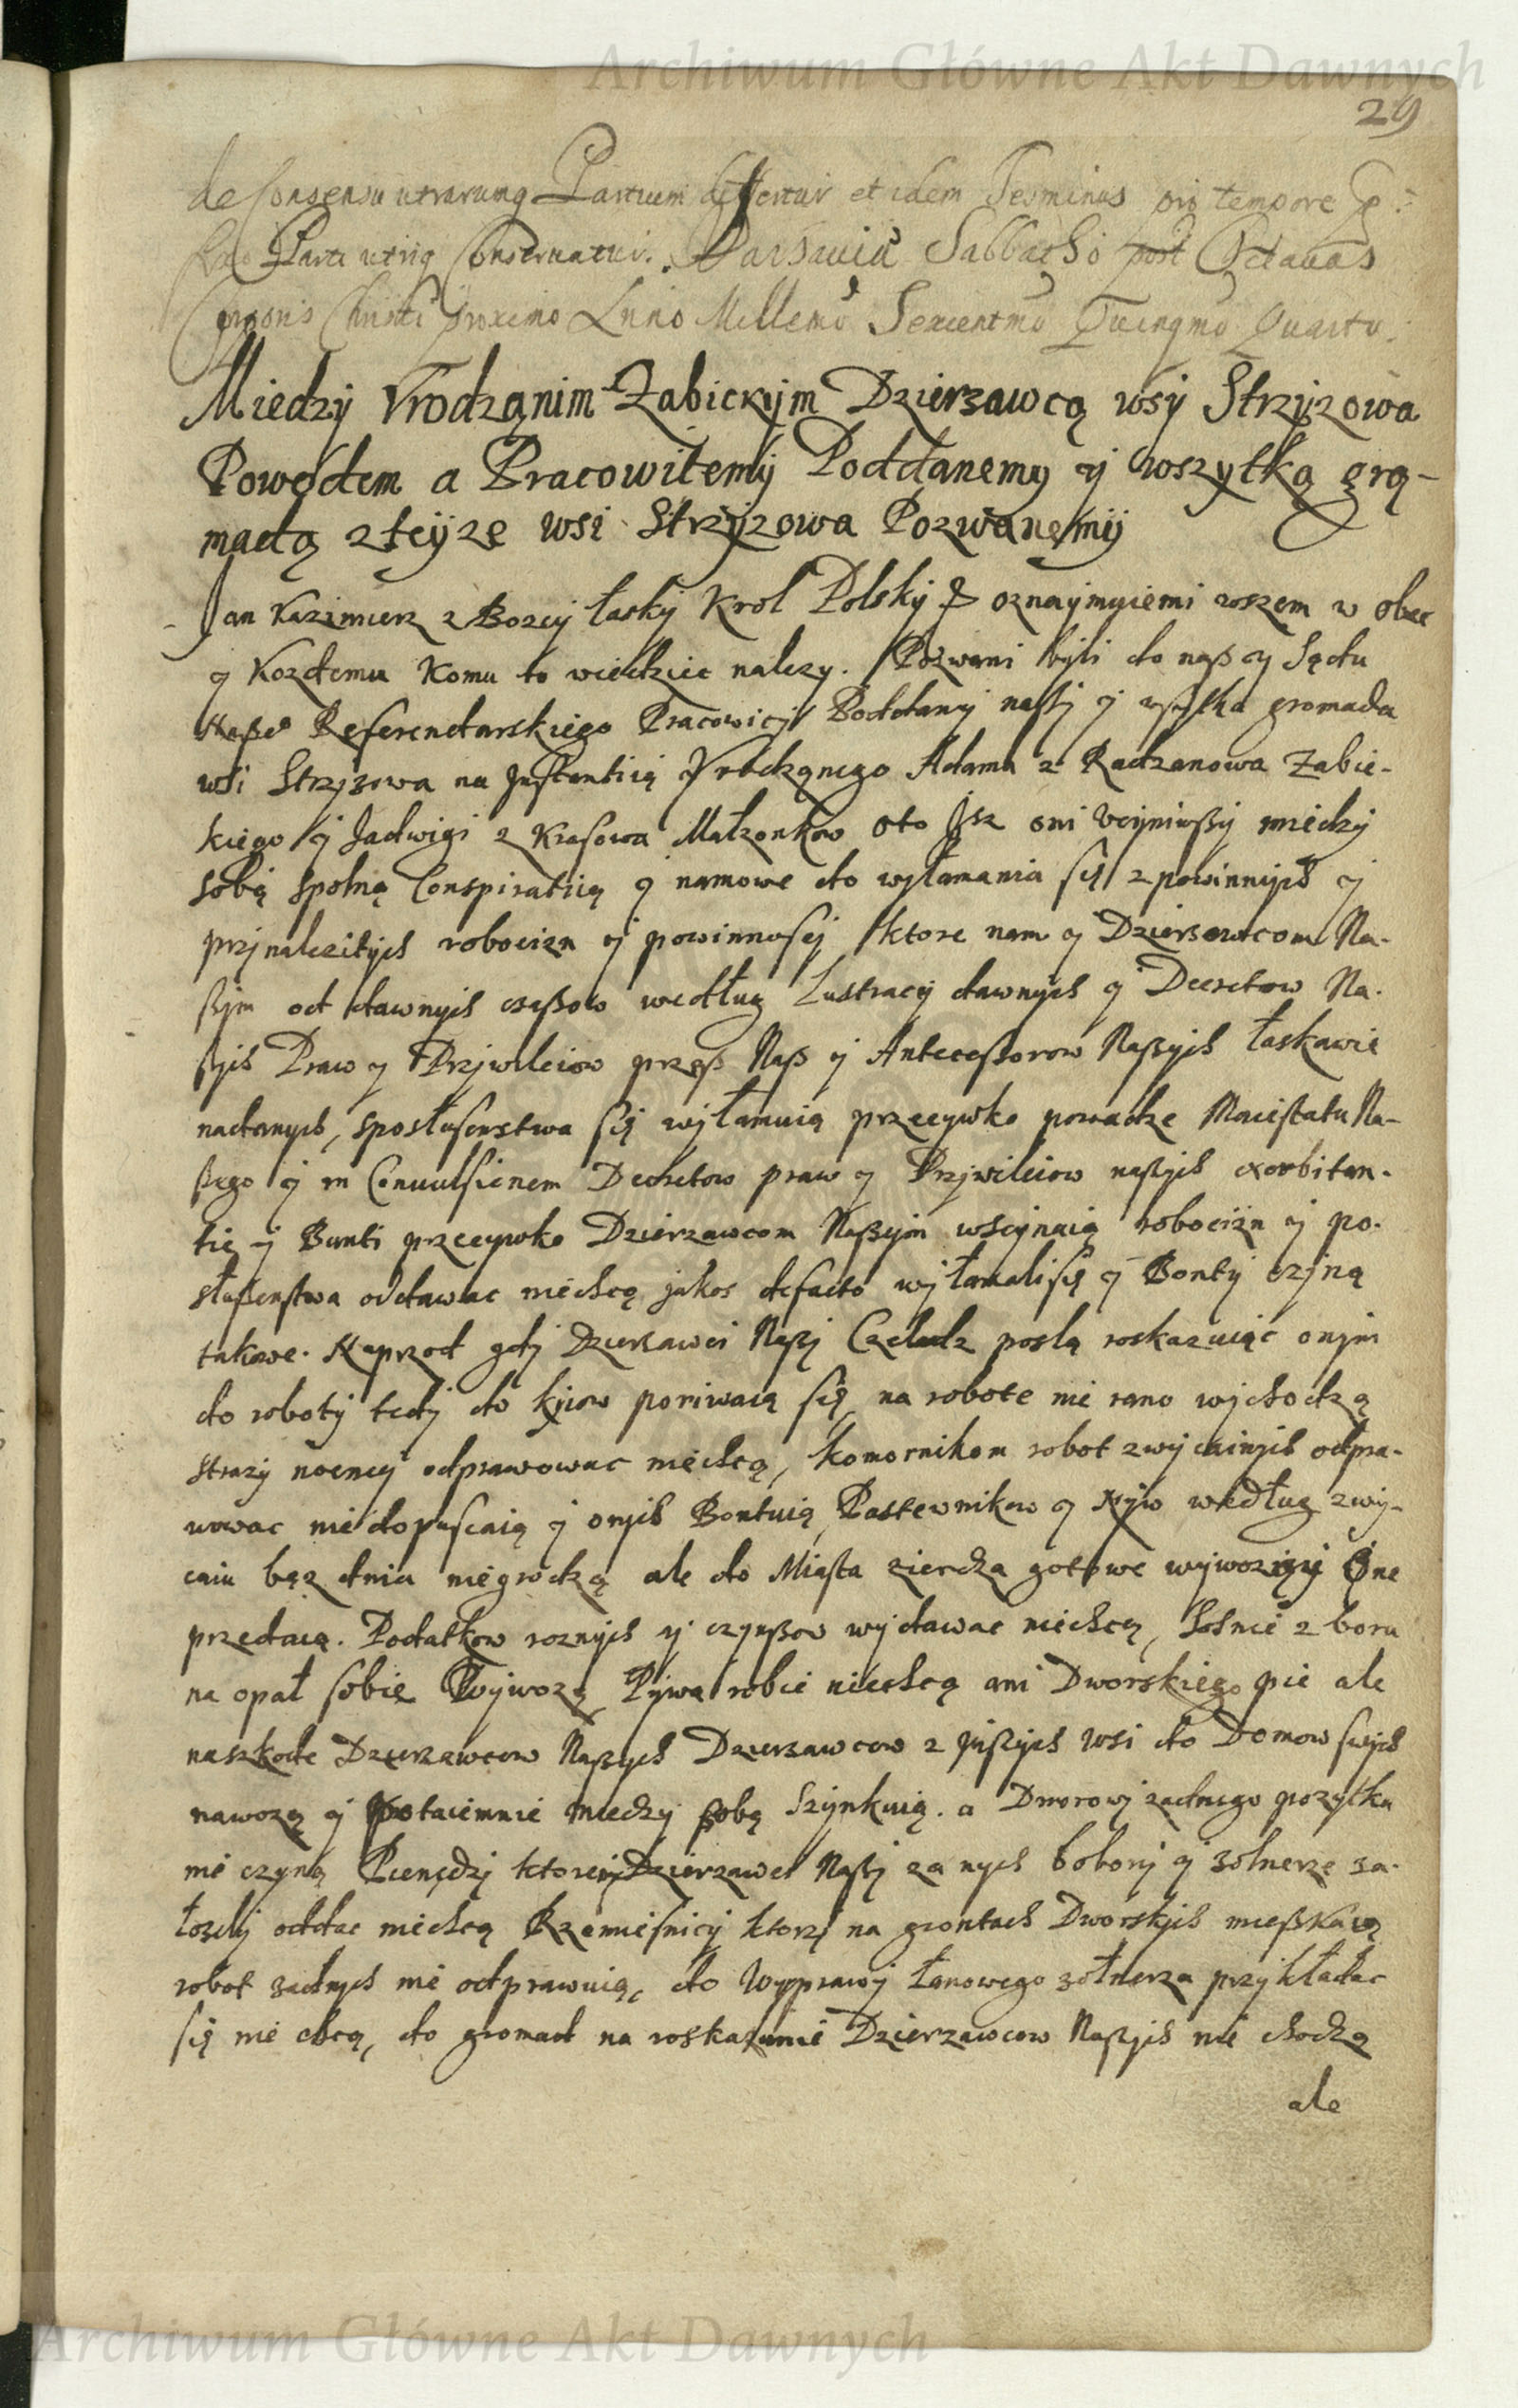 Archiwum Główne Akt Dawnych
29
de Consensu utrarumq Partium differtur et idem Terminus pro tempore
Parti utriq Conservatur. Varsaviæ Sabbatho post Octavas
Corporis Christi proximo Anno Millemo Sexcentmo Quinqmo Quarto.
Miedzy Vrodzonim Zabickijm Dzierzawcą wsij Strzyzowa
Powodem a Pracowitemij Poddanemij ij wszytką gro-
madą z teijze wsi Strzyzowa Pozwanemij
Jan Kazimierz z Bozeij łaskij Krol Polskij & oznaijmuiemi wszem w obec
ij Kozdemu Komu to wiedziec nalezy. Pozwani byli do nas ij Sądu
Naßeo Referendarskiego Pracowicij Poddanij naßij ij wßytka gromada
wsi Strzyzowa na Instantią Vrodzonego Adama z Radzanowa Zabic-
kiego ij Jadwigi z Krasowa Małzonkow oto Isz oni vcijniwßij miedzij
sobą spolną Conspiratią ij namowe do wyłamania się z powinnijch ij
przynalezitijch robocizn ij powinnoscij ktore nam ij Dzierzawcom Na-
ßijm od dawnijch czaßow według Lustracij dawnijch ij Decretow Na-
ßijch Praw ij Przywileiow przeß Naß ij Antecessorow Naßijch łaskawie
nadanijch, sposłusenstwa się wijłamuią przecijwko powadze Maiestatu Na-
ßego ij in Convulsionem Decretow praw ij Przywileiow naßijch exorbitan-
tie ij Bunti przecijwko Dzierzawcom Naßijm wscijnaią robocizn ij po-
słußenstwa oddawac niechcą jakos defacto wijłamalisię ij Bontij czijnią
takowe. Naprzod gdij Dzierzawci Naßij Czeladz poslą roskazuiąc onijm
do robotij tedij do kijow poriwaią się, na robote nie rano wijchodzą
strazij nocneij odprawowac niechcą, komornikom robot zwijcainijch odpra-
wowac niedopuscaią ij onijch Bontuią, Pastewnikow ij Nijw według zwij-
caiu bąz dnia niegrodzą ale do Miasta zierdza gotowe wijwozącij One
przedaią. Podatkow roznijch ij czijnßow wijdawac niechcą, Sosnie z boru
na opał sobie Wijwozą, Pijwa robic niechcą ani Dworskiego pic ale
naszkode Dzierzawcow Naßijch Dzierzawcow z inßijch wsi do Domow swijch
nawozą ij potaiemnie miedzij sobą Szijnkuią. a Dworowij zadnego pozijtku
nie czynią Pieniędzij ktore Dzierzawci Naßij za nijch boborij ij zołnierze za-
łozeli oddac niechcą Rzemiesnicij ktorzij na grontach Dworskijch mießkaią
robot zadnijch nie odprawuią, do Wijprawij łanowego zołnierza przijkładac
się nie chcą, do gromad na roskazanie Dzierzawcow Naßijch nie chodzą
ale
Archiwum Główne Akt Dawnych